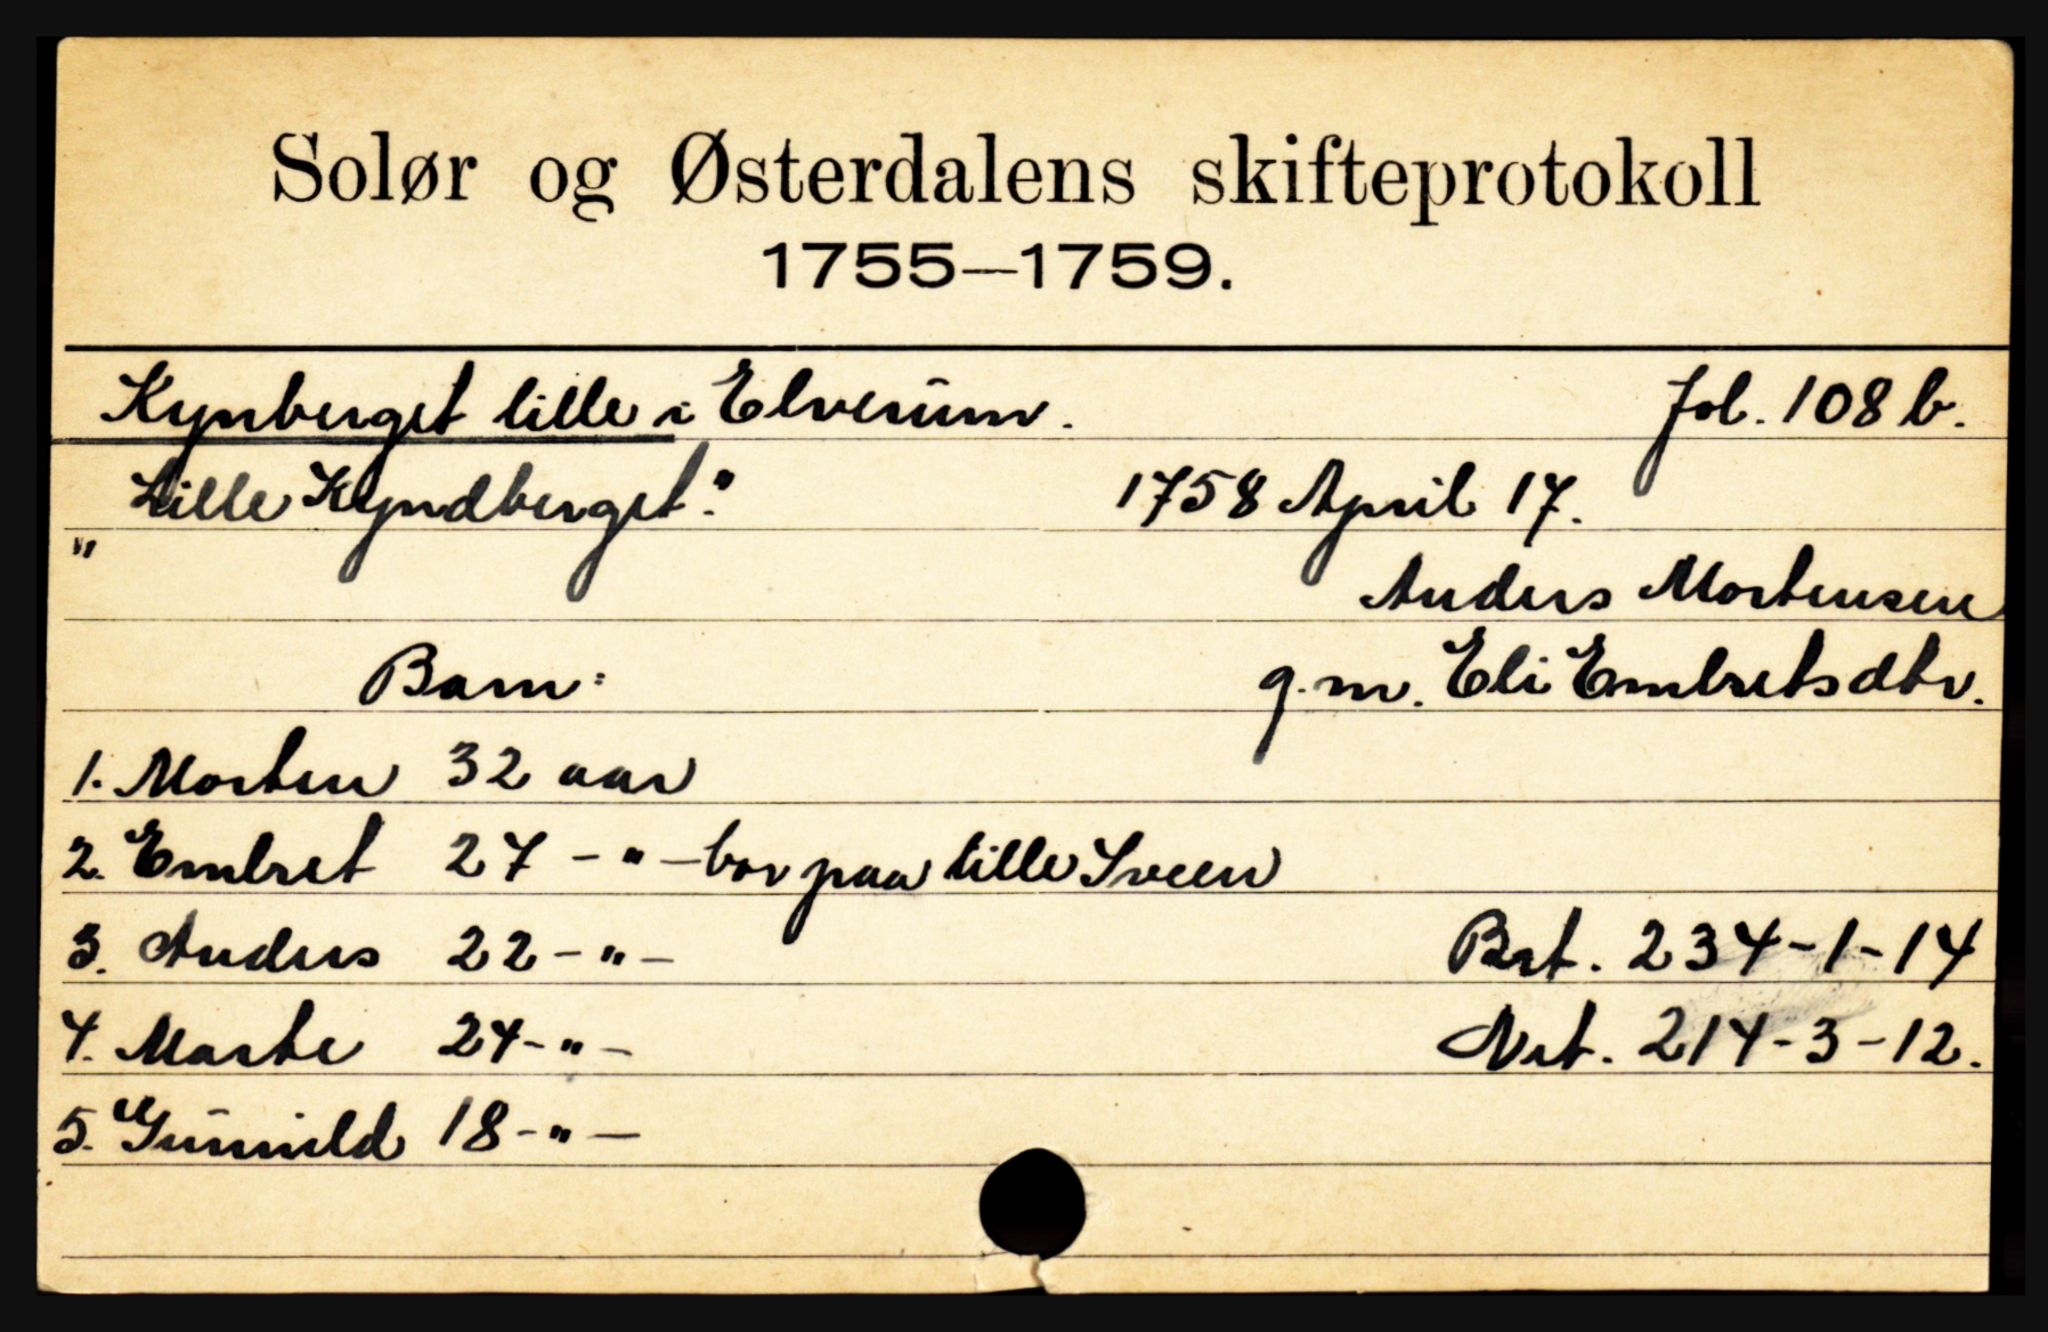 Solør og Østerdalens skifteprotokoll
1755—1759.
Kynberget lille i Elverum. Fol. 108 b.
"Lille Kyndberget." 1758 April 17.
Anders Mortensen
Barn: g.m. Eli Embretsdtr.
1. Morten 32 aar
2. Embret 27 - " - bor paa lille Sveen
3. Anders 22 - " - Brt. 234-1-14
4. Marte 24 - " - Nrt. 214-3-12.
5. Gunnild 18 - " -